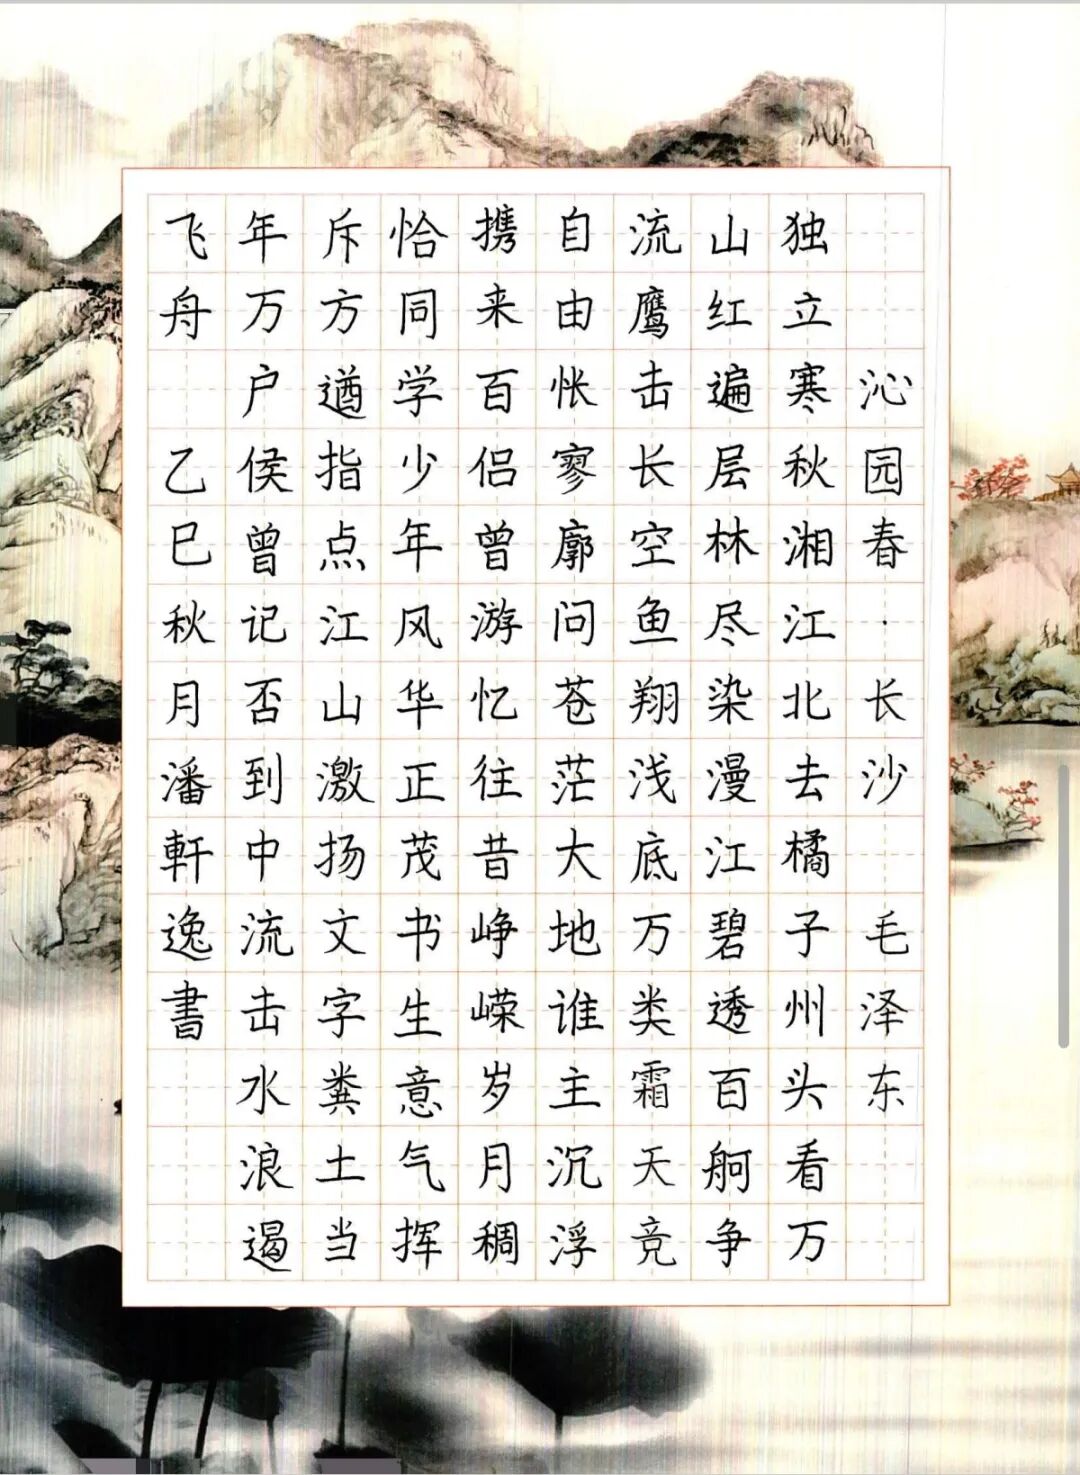 沁园春·长沙 毛泽东
独立寒秋湘江北去橘子州头看万
山红遍层林尽染漫江碧透百舸争
流鹰击长空鱼翔浅底万类霜天竞
自由怅寥廓问苍茫大地谁主沉浮
携来百侣曾游忆往昔峥嵘岁月稠
恰同学少年风华正茂书生意气挥
斥方遒指点江山激扬文字粪土当
年万户侯曾记否到中流击水浪遏
飞舟 乙巳秋月潘軒逸書